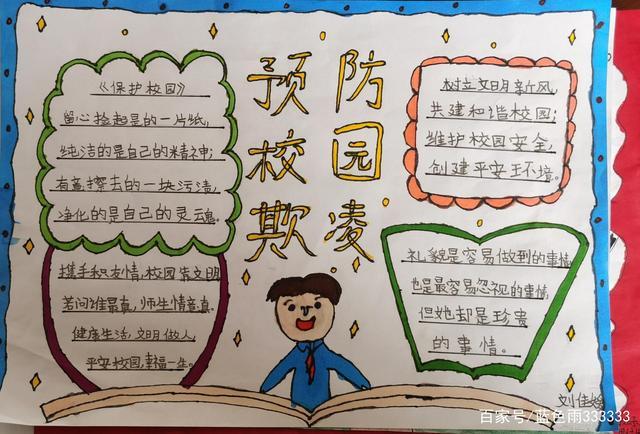 预防
校园
欺凌
《保护校园》
留心捡起是的一片纸,
纯洁的是自己的精神;
有意擦去的一块污渍,
净化的是自己的灵魂。
携手积友情,校园崇文明
若问谁最真,师生情意真。
健康生活,文明做人,
平安校园,幸福一生。
树立文明新风,
共建和谐校园;
维护校园安全,
创建平安环境。
礼貌是容易做到的事情
也是最容易忽视的事情
但她却是珍贵
的事情。
刘佳
百家号/蓝色雨333333